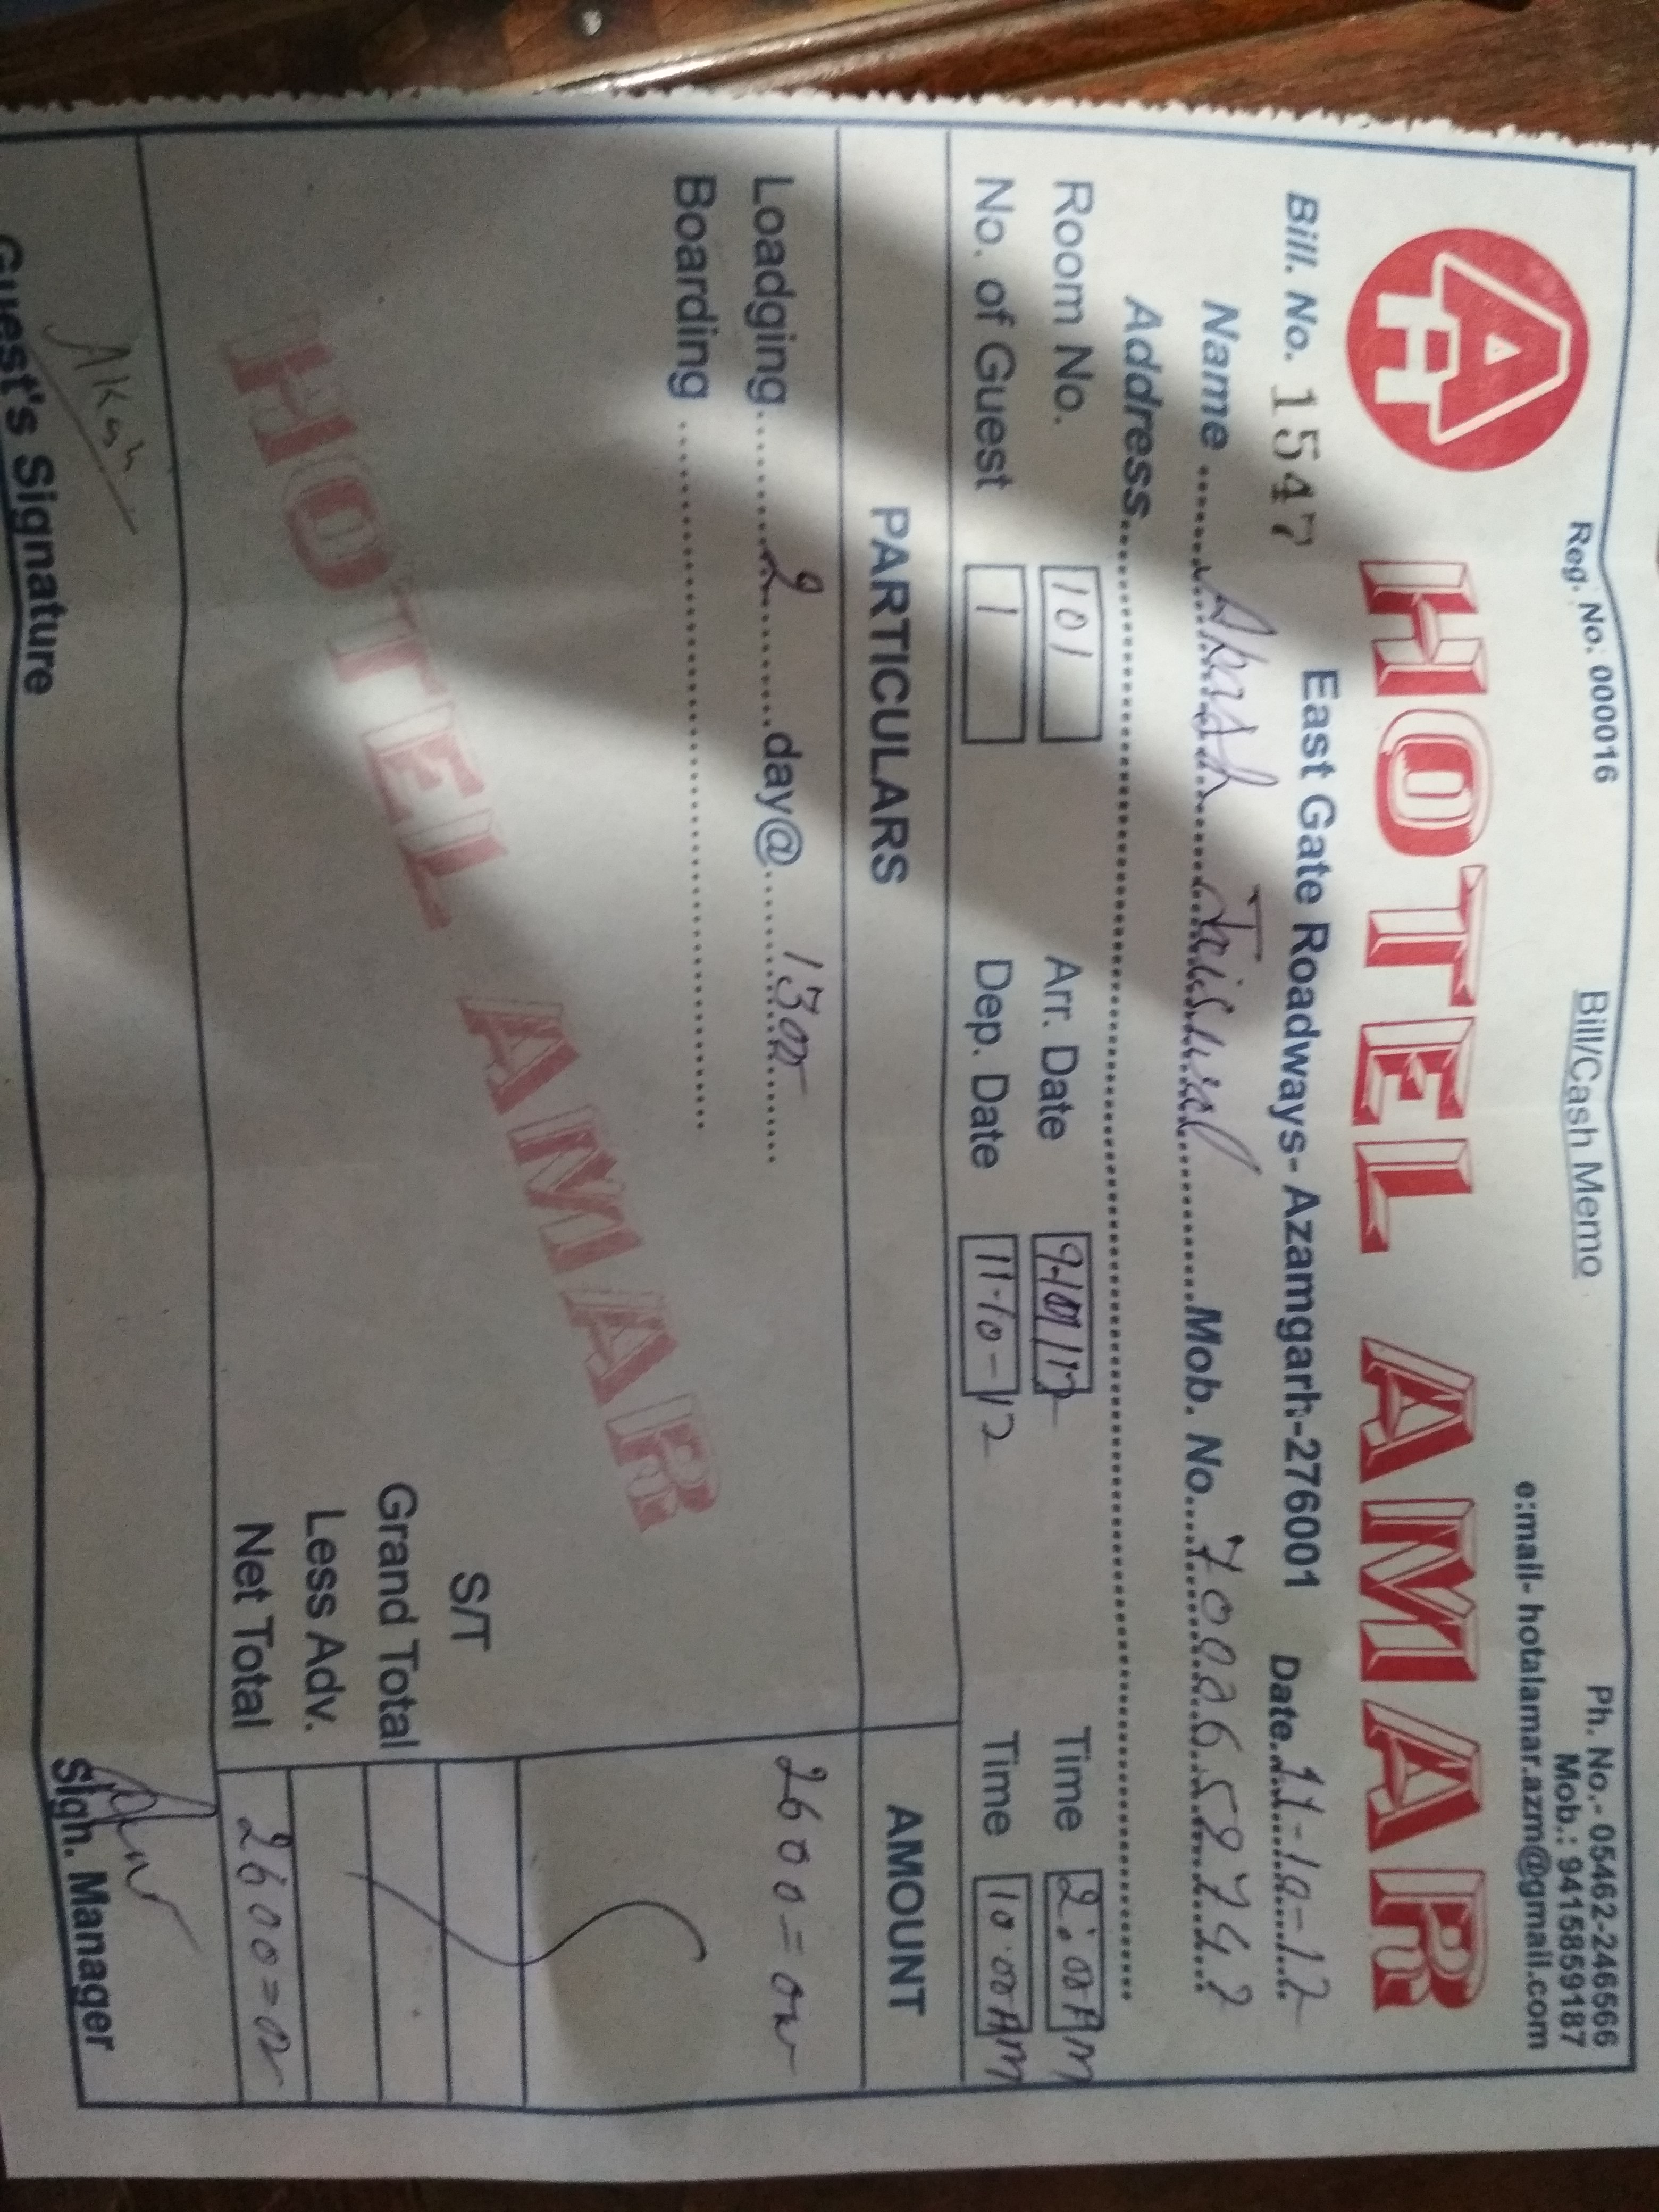 Reg. No: 000016 Bill/Cash Memo Ph. No.- 05462-246566
Mob.: 9415859187
e:mail- hotalamar.azm@gmail.com
A
HOTEL AMAR
East Gate Roadways- Azamgarh-276001
Bill. No. 1547 Date 11-10-17
Name Akash Jaiswal Mob. No. 7000658747
Address
Room No. 101 Arr. Date 9-10-17 Time 2:00 AM
No. of Guest 1 Dep. Date 11-10-17 Time 10:00 AM
PARTICULARS AMOUNT
Loadging 2 day@ 1300 2600=00
Boarding
HOTEL AMAR
S/T
Grand Total
Less Adv.
Net Total 2600=00
Akash
Guest's Signature Sign. Manager